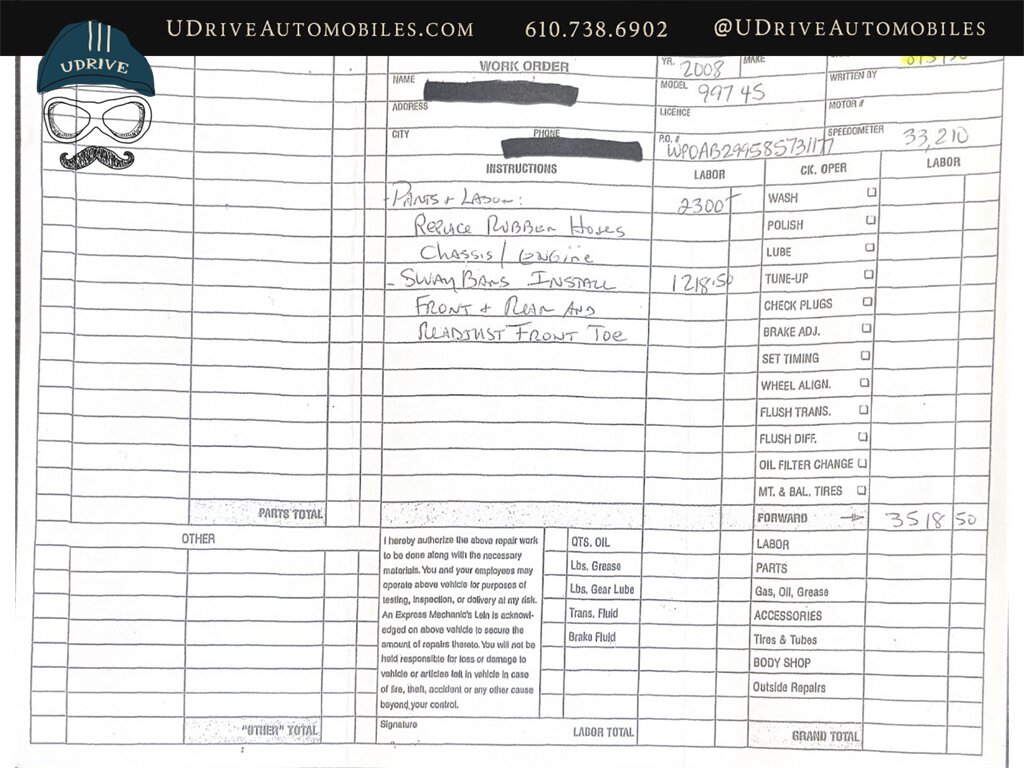 UDRIVEAUTOMOBILES.COM 610.738.6902 @UDRIVEAUTOMOBILES
UDRIVE
WORK ORDER
YR. 2008 MAKE
NAME
MODEL 997 4S
WRITTEN BY
ADDRESS
LICENCE
MOTOR #
CITY PHONE
P.O. # WP0AB29958S731177
SPEEDOMETER 33,210
INSTRUCTIONS LABOR CK. OPER LABOR
- PARTS + LABOR: 2300 WASH
REPLACE RUBBER HOSES POLISH
CHASSIS / ENGINE LUBE
- SWAY BARS INSTALL 1218.50 TUNE-UP
FRONT + REAR AND CHECK PLUGS
READJUST FRONT TOE BRAKE ADJ.
SET TIMING
WHEEL ALIGN.
FLUSH TRANS.
FLUSH DIFF.
OIL FILTER CHANGE
MT. & BAL. TIRES
PARTS TOTAL FORWARD 3518 50
OTHER
I hereby authorize the above repair work
to be done along with the necessary
materials. You and your employees may
operate above vehicle for purposes of
testing, inspection, or delivery at my risk.
An Express Mechanic's Lein is acknowl-
edged on above vehicle to secure the
amount of repairs thereto. You will not be
held responsible for loss or damage to
vehicle or articles left in vehicle in case
of fire, theft, accident or any other cause
beyond your control.
QTS. OIL LABOR
Lbs. Grease PARTS
Lbs. Gear Lube Gas, Oil, Grease
Trans. Fluid ACCESSORIES
Brake Fluid Tires & Tubes
BODY SHOP
Outside Repairs
"OTHER" TOTAL Signature LABOR TOTAL GRAND TOTAL